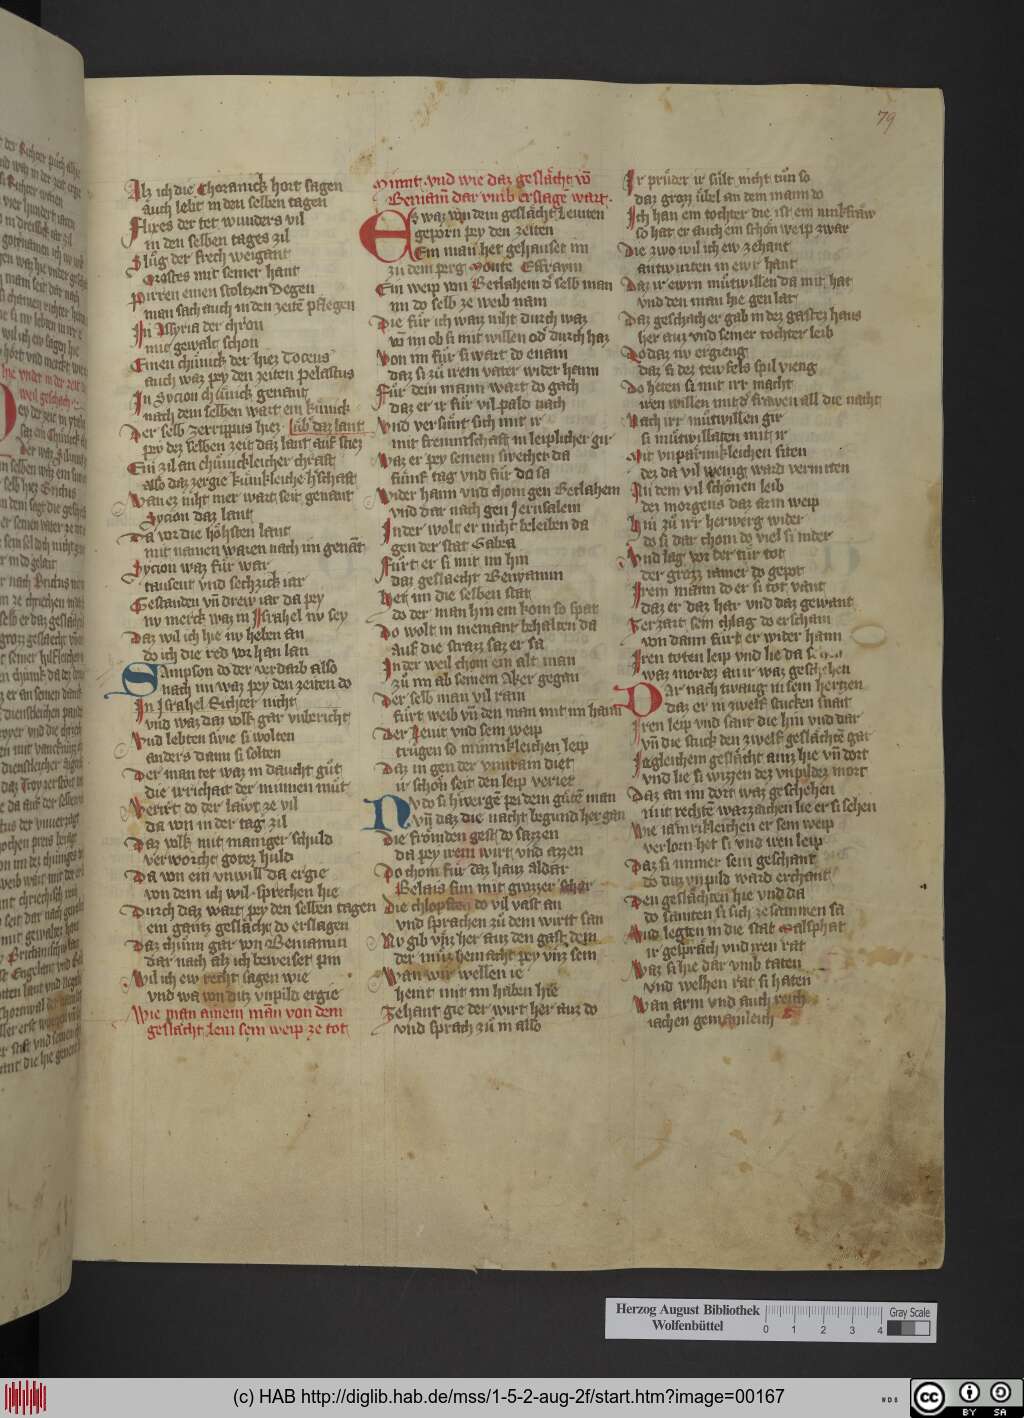 79
Alz ich die Choranick hort sagen
auch lebt in den selben tagen
Flixes der tet wunders vil
in den selben tages zil
Slůg der frech weigant
Orostes mit seiner hant
Pirren einen stoltzen degen
man sach auch in den zeitē pflegen
In Assyria der chron
mit gewalt schon
Einen chünick der hiez Toceus
auch waz pey den zeiten pelastus
In Sycion chünick genant
nach dem selben wart ein künick
Der selb Zerrippus hiez lāb daz lant
pey dez selben zeit daz lant auf stiez
Ein zil an chünickleicher chraft
also daz zergie künikleiche hschaft
Wan ez niht mer wart seit genant
Sycion daz lant
Da vor die höhsten lant
mit namen waren nach im genāt
Sycion waz für war
tausent vnd sechzick iar
Gestanden vn̄ drew iar da pey
nv merck waz in Israhel nv sey
Daz wil ich hie nv heben an
do ich die red vor han lan
Sampson do der verdarb also
nach im waz pey den zeiten do
In Israhel Richter nicht
vnd waz daz volk gar vnbericht
Vnd lebten swie si wolten
anders dann si solten
Der man tet waz in daucht gůt
die irrichait der mumen můt
Verirt do der lawt ze vil
da von in der tag zil
Daz volk mit maniger schuld
verworcht gotez huld
Da von ein vnwill da ergie
von dem ich wil sprechen hie
Durch daz wart pey den selben tagen
ein gantz geslächt do erslagen
Daz chünn gar von Beniamin
dar nach alz ich beweiset pin
Wil ich ew recht sagen wie
vnd wa von ditz vnpild ergie
Wie man ainem man von dem
geslächt leui sein weip ze tot
Minnt vnd wie daz geslächt vō
Beniam̄ dar vmb erslagē wart
Ez waz von dem geslächt Leuiten
geporn pey den zeiten
Ein man het gehauset im
zů dem perg Monte Effraym
Ein weip von Betlahem d selb man
im do selb ze weib nam
Die für ich waz niht durch waz
vō im ob si mit willen od durch haz
Von im für si wart do enain
daz si zů irem vater wider hann
Für dem mann wart do gach
daz er ir für vil pald nach
Vnd versůnt sich mit ir
mit freuntschaft in leiplicher gir
Waz er pey seinem swecher da
fünf tag vnd für do sa
Wider haim vnd chom gen Betlahem
vnd dar nach gen Jerusalem
In der wolt er nicht beleiben da
gen der stat Gabea
Fůrt er si mit im hin
daz geslächt Benyamin
Het im die selben stat
do der man hin ein kom so spat
Do wolt in niemant behalten da
auf die strazz saz er sa
In der weil chom ein alt man
zů im ab seinem Aker gegan
Der selb man vil ram
fůrt weib vn̄ den man mit im haim
Der Leuit vnd sein weip
trůgen so minnikleichen leip
Daz in gen der vnrain diet
ir schön seit den leip veriet
Nv do si hwergē pei dem gůtē man
vn̄ daz die nacht begund her gan
Die frömden gest do sazzen
da pey irem wirt vnd azzen
Do chom für daz hauz aldar
Belais sun mit grozzer schar
Die chlopften do vil vast an
vnd sprachen zů dem wirtt san
Nv gib vns her auz den gast dein
der můz heinacht pey vns sein
Wan wir wellen ie
heint mit im haben hie
Zehant gie der wirt her auz do
vnd sprach zů in also
Ir průder ir sült nicht tůn so
daz groz übel an dem mann do
Ich han ein tochter die ist ein iunkfraw
so hat er auch ein schön weip zwar
Die zwo wil ich ew zehant
antwurten in ewr hant
Daz ir ewrn můtwillen da mit hat
vnd den man hie gen lat
Daz geschach er gab in dez gastez haus
her auz vnd seiner tochter leib
Do daz nv ergieng
daz si dez tewfels spil vieng
Do heten si mit irr macht
iren willen mit d frawen all die nacht
Nach irr můtwillen gir
si můtwillaten mit ir
Mit vnpärmkleichen siten
dez da vil wenig ward vermiten
An dem vil schönen leib
dez morgens daz arm weip
Hin zů irr herwerg wider
do si dar chom do viel si nider
Vnd lag vor der tür tot
der groz iamer do gepot
Irem mann do er si tot vant
daz er daz har vnd daz gewant
Zerzart sein chlag do erscham
von dann fůrt er wider haim
Iren toten leip vnd lie da s
waz mordez an ir waz geschehen
Dar nach twang in sein hertzen
daz er in zwelf stucken snait
Iren leip vnd sant die hin vnd dar
vn̄ die stuck den zwelf geslächtē gar
Iegleichem geslächt ainz hie vn̄ dort
vnd lie si wizzen dez vnpildez mort
Daz an im dort waz geschehen
mit rechtē warzzaichen lie er si sehen
Wie iamrikleichen er sein weip
verlorn het si vnd iren leip
Daz si immer sein geschant
do ditz vnpild ward erchant
Den geslächten hie vnd da
do samten si sich zesammen sa
Vnd legten in die stat Malsphat
ir gespräch vnd iren rat
Waz si hie dar vmb taten
vnd welhen rat si haten
Wan arm vnd auch reich
iachen gemainleich
Herzog August Bibliothek
Wolfenbüttel
0 1 2 3 4
Gray Scale
(c) HAB http://diglib.hab.de/mss/1-5-2-aug-2f/start.htm?image=00167
WDB
cc BY SA